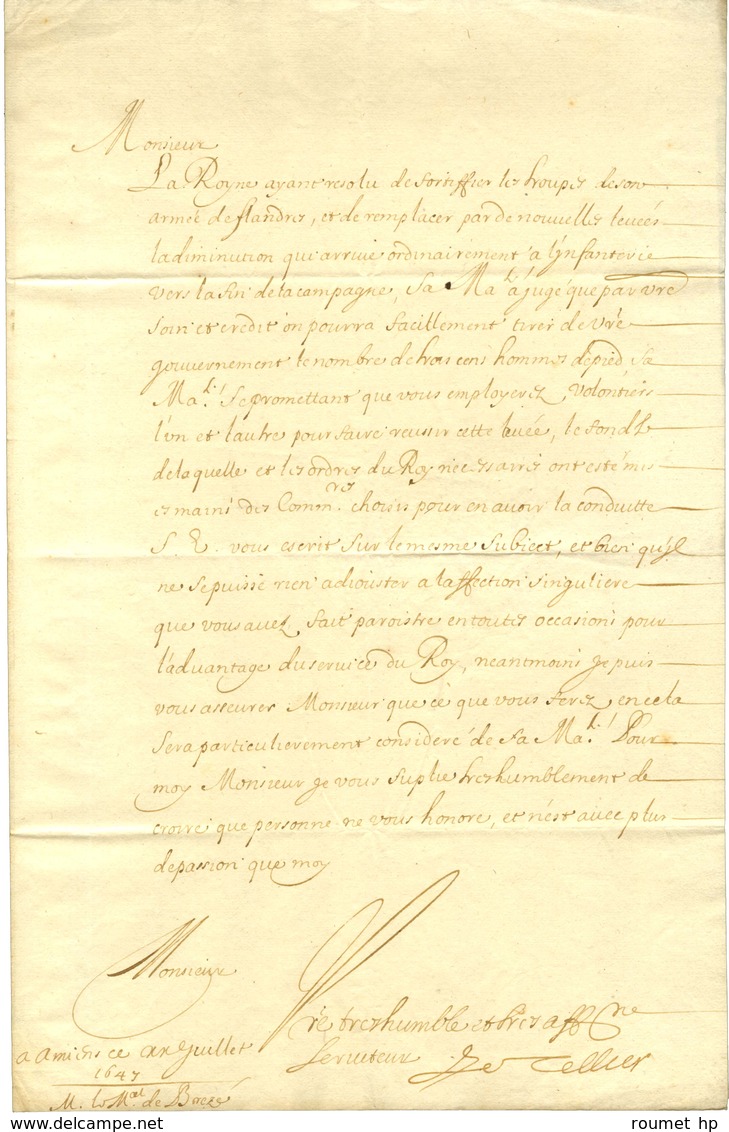 Monsieur
La Royne ayant resolu de fortiffier les troupes de son
armée de flandres, et de remplacer par de nouvelles levées
la diminution qui arrive ordinairement a l'ynfanterie
vers la fin de la campagne, Sa Ma.té a jugé que par vre
soin et credit on pourra facillement tirer de vre
gouvernement le nombre de trois cens hommes de pied, Sa
Ma.té se promettant que vous employerez volontiers
l'un et l'autre pour faire reussir cette levée, le fond de
laquelle et les ordres du Roy necessaires ont esté mis
es mains des Comm.res choisis pour en avoir la conduitte
S. E. vous escrit sur le mesme subiect, et bien qu'yl
ne se puisse rien adiouster a l'affection singuliere
que vous avez fait paroistre en toutes occasions pour
l'advantage du service du Roy, neantmoins je puis
vous asseurer Monsieur que ce que vous ferez en cela
sera particulierement consideré de Sa Ma.té Pour
moy Monsieur je vous suplie tres humblement de
croire que personne ne vous honore, et n'est avec plus
de passion que moy
Monsieur
Vre tres humble et tres aff.nne
serviteur Le Tellier
a Amiens ce Juillet
1647
M. le M.al de Brezé
roumet hp